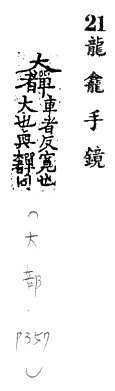 21龍龕手鏡
奲車者反寬也
大也與同
（大部．P357）